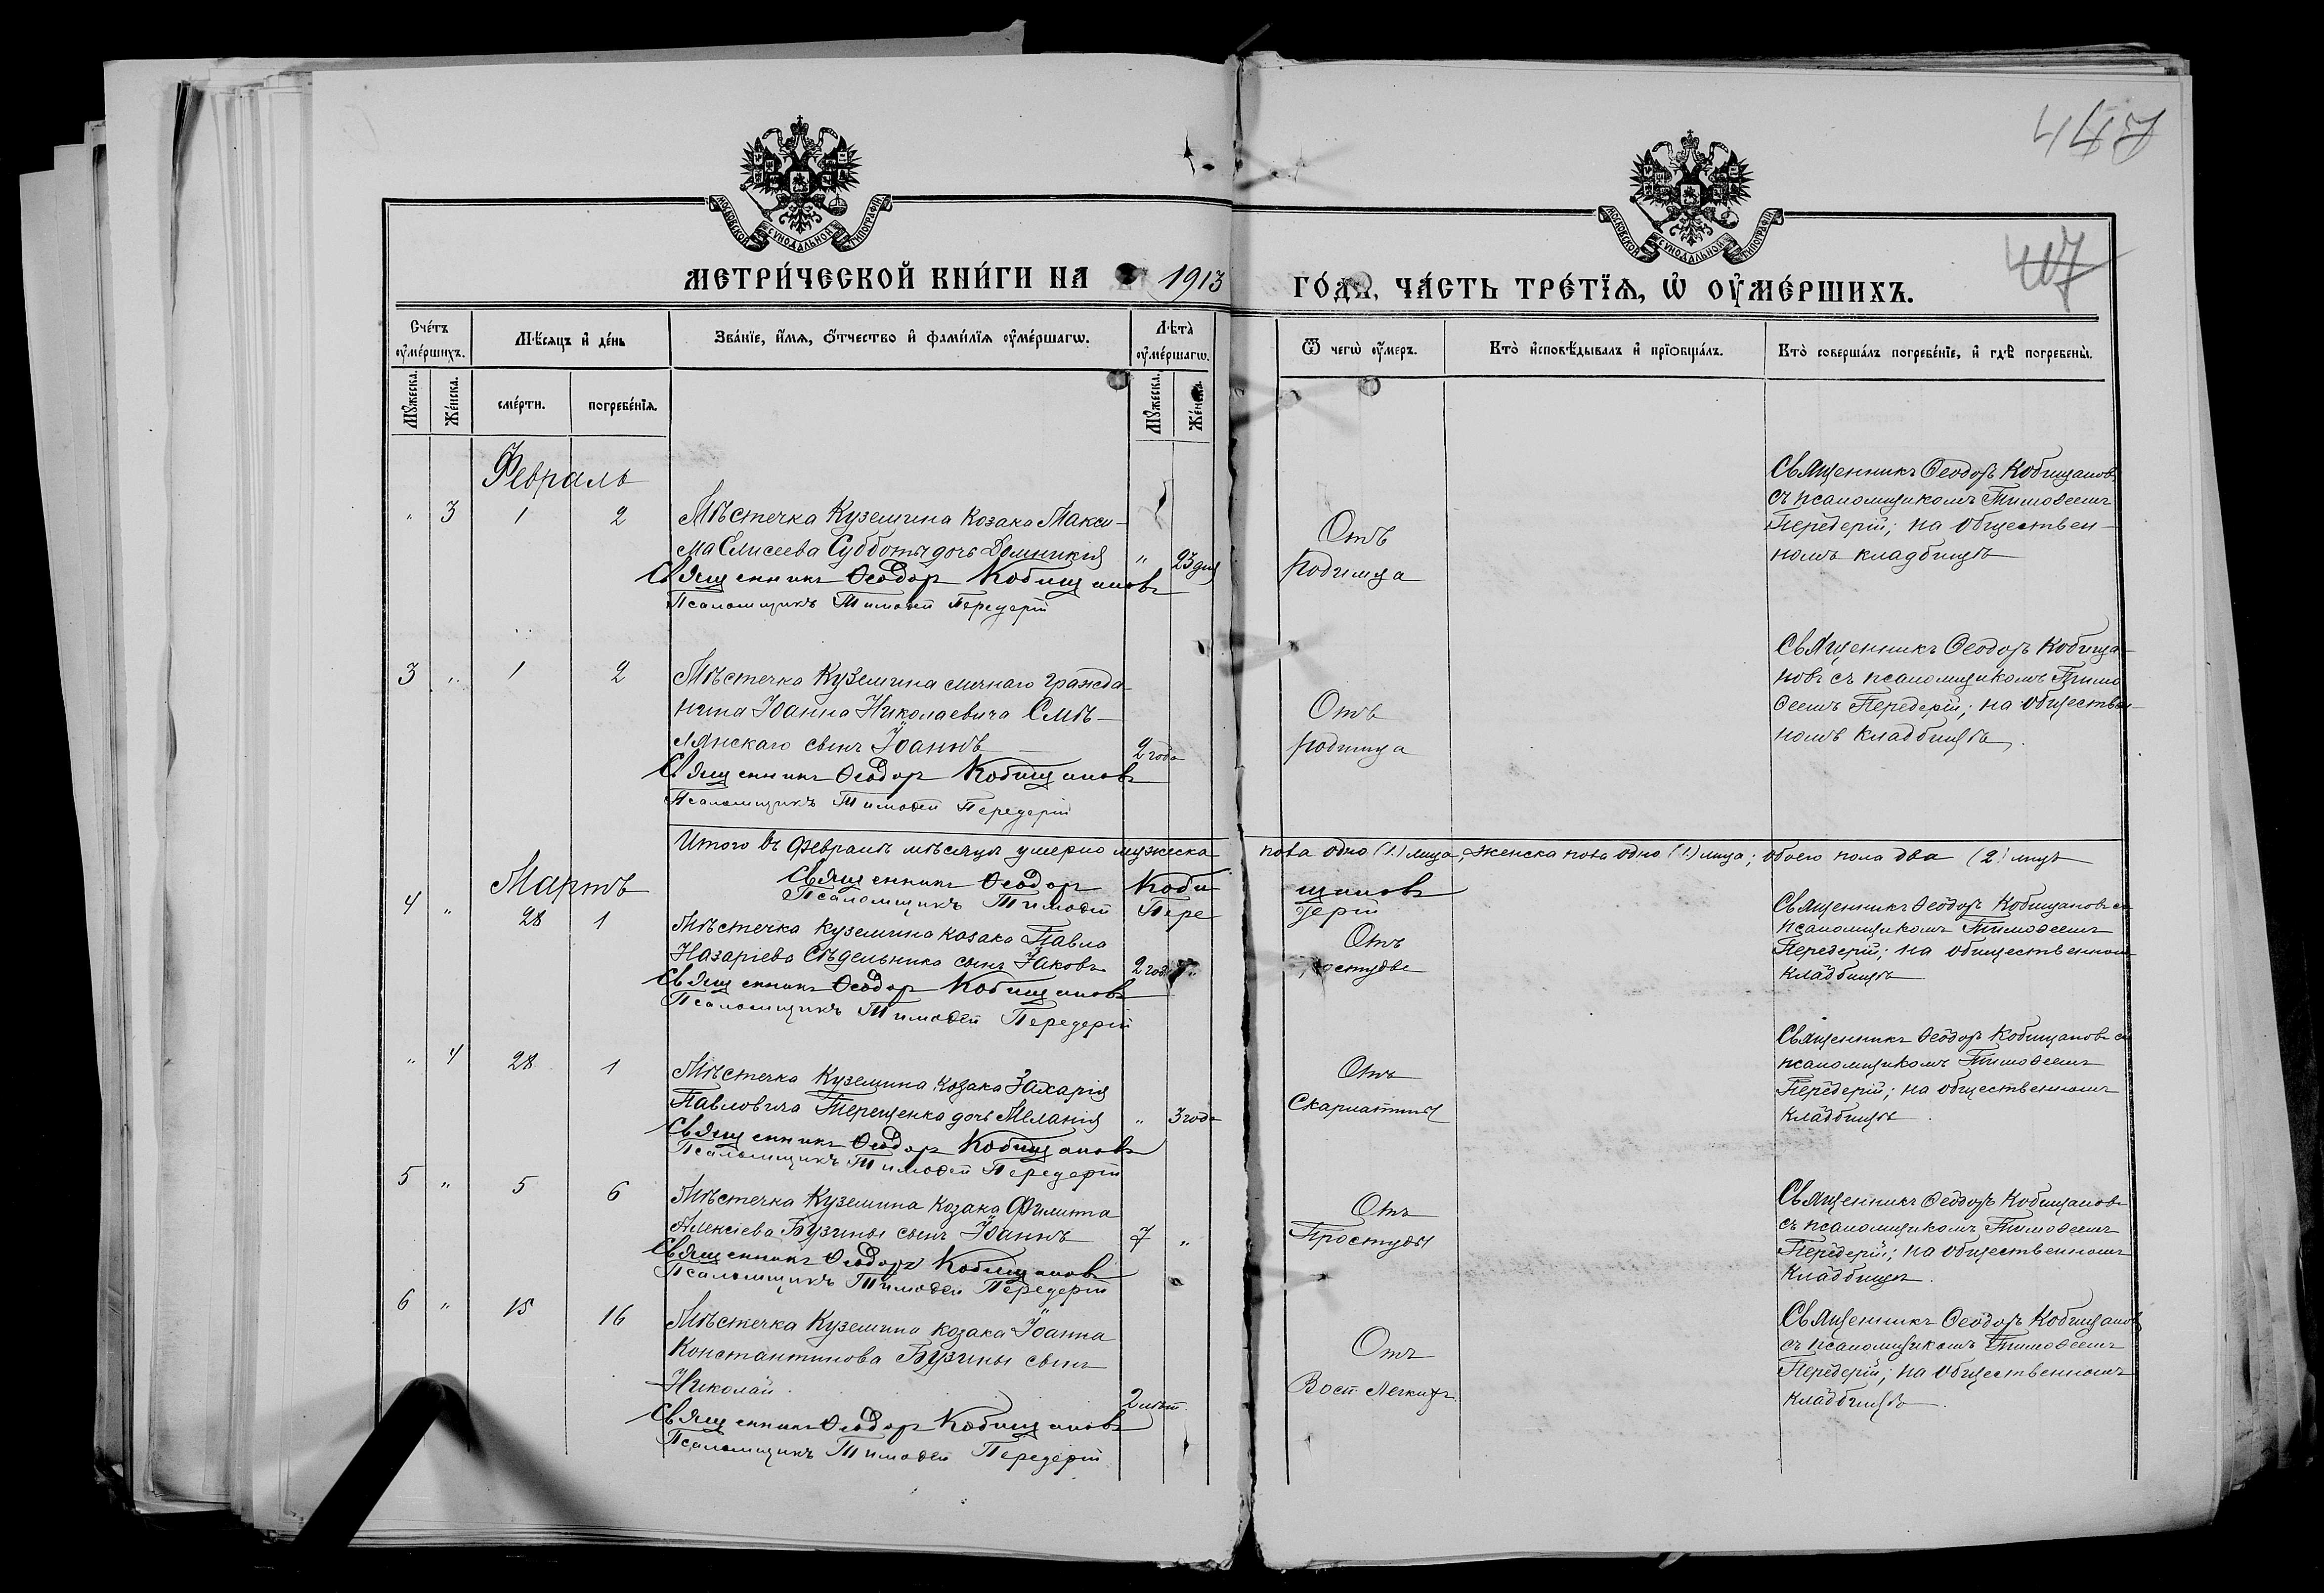 447
407
МОСКОВСКОЙ СѴНОДАЛЬНОЙ ТИПОГРАФІИ
МОСКОВСКОЙ СѴНОДАЛЬНОЙ ТИПОГРАФІИ
МЕТРИ́ЧЕСКОЙ КНИ́ГИ НА 1913 ГО́ДЪ, ЧА́СТЬ ТРЕ́ТЇѦ, Ѡ҆ ОУ҆МЕ́РШИХЪ.
Сче́тъ оу҆ме́ршихъ.
Мꙋ́жеска.
Же́нска.
Мѣ́сѧцъ и҆ де́нь
сме́рти.
погребе́нїѧ.
Зва́нїе, и҆́мѧ, ѻ҆́тчество и҆ фами́лїѧ оу҆ме́ршагѡ.
Лѣ́та оу҆ме́ршагѡ.
Мꙋ́жеска.
Же́нска.
Ѿ чегѡ̀ оу҆́меръ.
Кто̀ и҆сповѣ́дывалъ и҆ прїѡбща́лъ.
Кто̀ соверша́лъ погребе́нїе, и҆ гдѣ̀ погребены̀.
Февраль
" 3 1 2
Мѣстечка Куземина козака Макси-
ма Елисеева Субботы дочь Домникия " 23 дня
Священникъ Ѳеодоръ Кобищановъ
Псаломщикъ Тимоѳей Передерій
Отъ
родимца
Священникъ Ѳеодоръ Кобищановъ
съ псаломщикомъ Тимоѳеемъ
Передерій; на обществен-
номъ кладбищѣ
3 " 1 2
Мѣстечка Куземина личнаго гражда-
нина Іоанна Николаевича Смѣ-
лянскаго сынъ Іоаннъ 2 года
Священникъ Ѳеодоръ Кобищановъ
Псаломщикъ Тимоѳей Передерій
Отъ
родимца
Священникъ Ѳеодоръ Кобища-
новъ съ псаломщикомъ Тимо
ѳеемъ Передерій; на обществен-
номъ кладбищѣ.
Итого въ Февралѣ мѣсяцѣ умерло мужеска пола одно (1) лицо, женска пола одно (1) лицо; обоего пола два (2) лица
Священникъ Ѳеодоръ Кобищановъ
Псаломщикъ Тимоѳей Передерій
Мартъ
4 " 28 1
Мѣстечка Куземина козака Павла
Назаріева Сѣдельника сынъ Іаковъ 2 года "
Священникъ Ѳеодоръ Кобищановъ
Псаломщикъ Тимоѳей Передерій
Отъ
простуды
Священникъ Ѳеодоръ Кобищановъ съ
псаломщикомъ Тимоѳеемъ
Передерій; на общественном
кладбищѣ
" 4 28 1
Мѣстечка Куземина козака Захарія
Павловича Терещенка дочь Меланія " 3 года
Священникъ Ѳеодоръ Кобищановъ
Псаломщикъ Тимоѳей Передерій
Отъ
Скарлатины
Священникъ Ѳеодоръ Кобищановъ съ
псаломщикомъ Тимоѳеемъ
Передерій; на общественномъ
кладбищѣ.
5 " 5 6
Мѣстечка Куземина козака Филиппа
Алексіева Бузины сынъ Іоаннъ 7 "
Священникъ Ѳеодоръ Кобищановъ
Псаломщикъ Тимоѳей Передерій
Отъ
Простуды
Священникъ Ѳеодоръ Кобищановъ
съ псаломщикомъ Тимоѳеемъ
Передерій; на общественномъ
кладбищѣ.
6 " 15 16
Мѣстечка Куземина козака Іоанна
Константинова Бузины сынъ
Николай 2 лѣт.
Священникъ Ѳеодоръ Кобищановъ
Псаломщикъ Тимоѳей Передерій
Отъ
Восп. Легкихъ
Священникъ Ѳеодоръ Кобищановъ
съ псаломщикомъ Тимоѳеемъ
Передерій; на общественномъ
кладбищѣ.